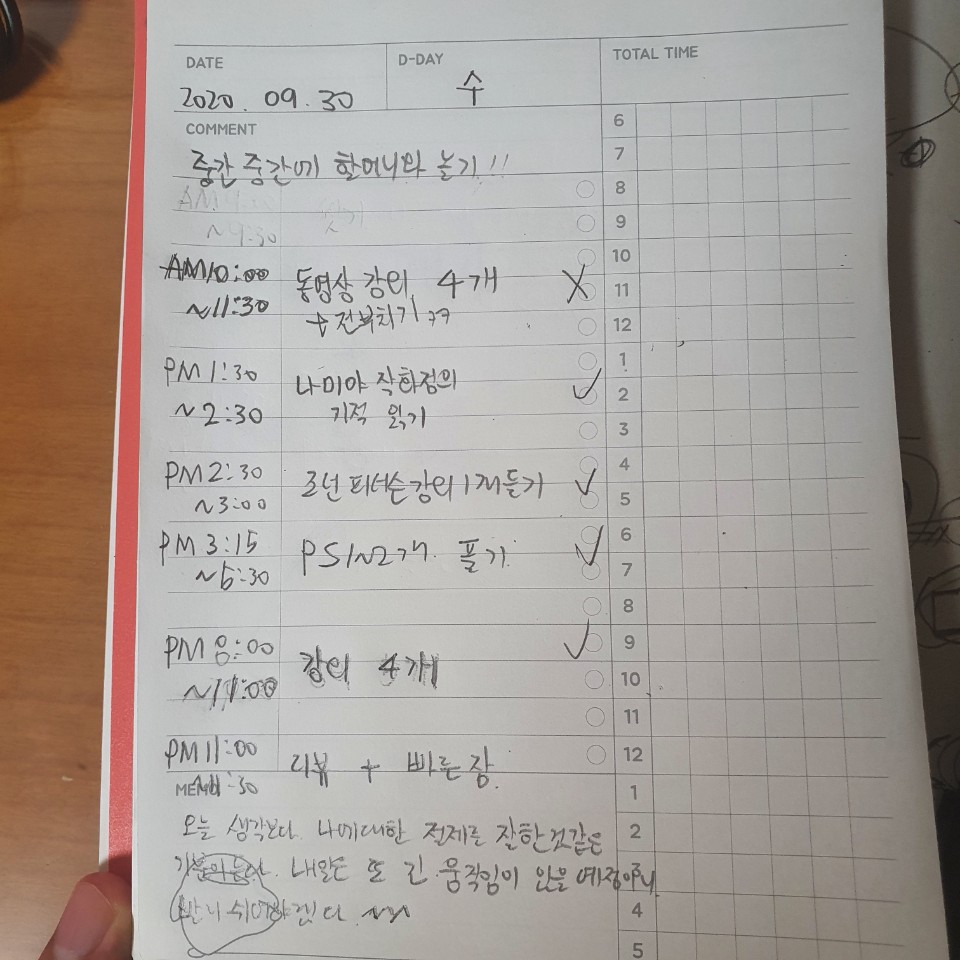 DATE
D-DAY
TOTAL TIME
2020. 09. 30
수
COMMENT
중간중간에 할머니와 놀기!!
AM
~9:30
AM10:00
~11:30
동영상 강의 4개
+ 전부치기 ㅋㅋ
X
PM 1:30
~2:30
나미야 잡화점의
기적 읽기
PM 2:30
~3:00
조던 피터슨 강의 1개 듣기
PM 3:15
~5:30
PS 1~2개 풀기
PM 8:00
~11:00
강의 4개
PM 11:00
MEMO
:30
리뷰 + 빠른 잠
오늘 생각보다 나에 대한 절제를 잘한것같은
기분이 든다. 내일은 또 긴 움직임이 있을 예정이니
빨리 쉬어야겠다 ~~
6
7
8
9
10
11
12
1
2
3
4
5
6
7
8
9
10
11
12
1
2
4
5